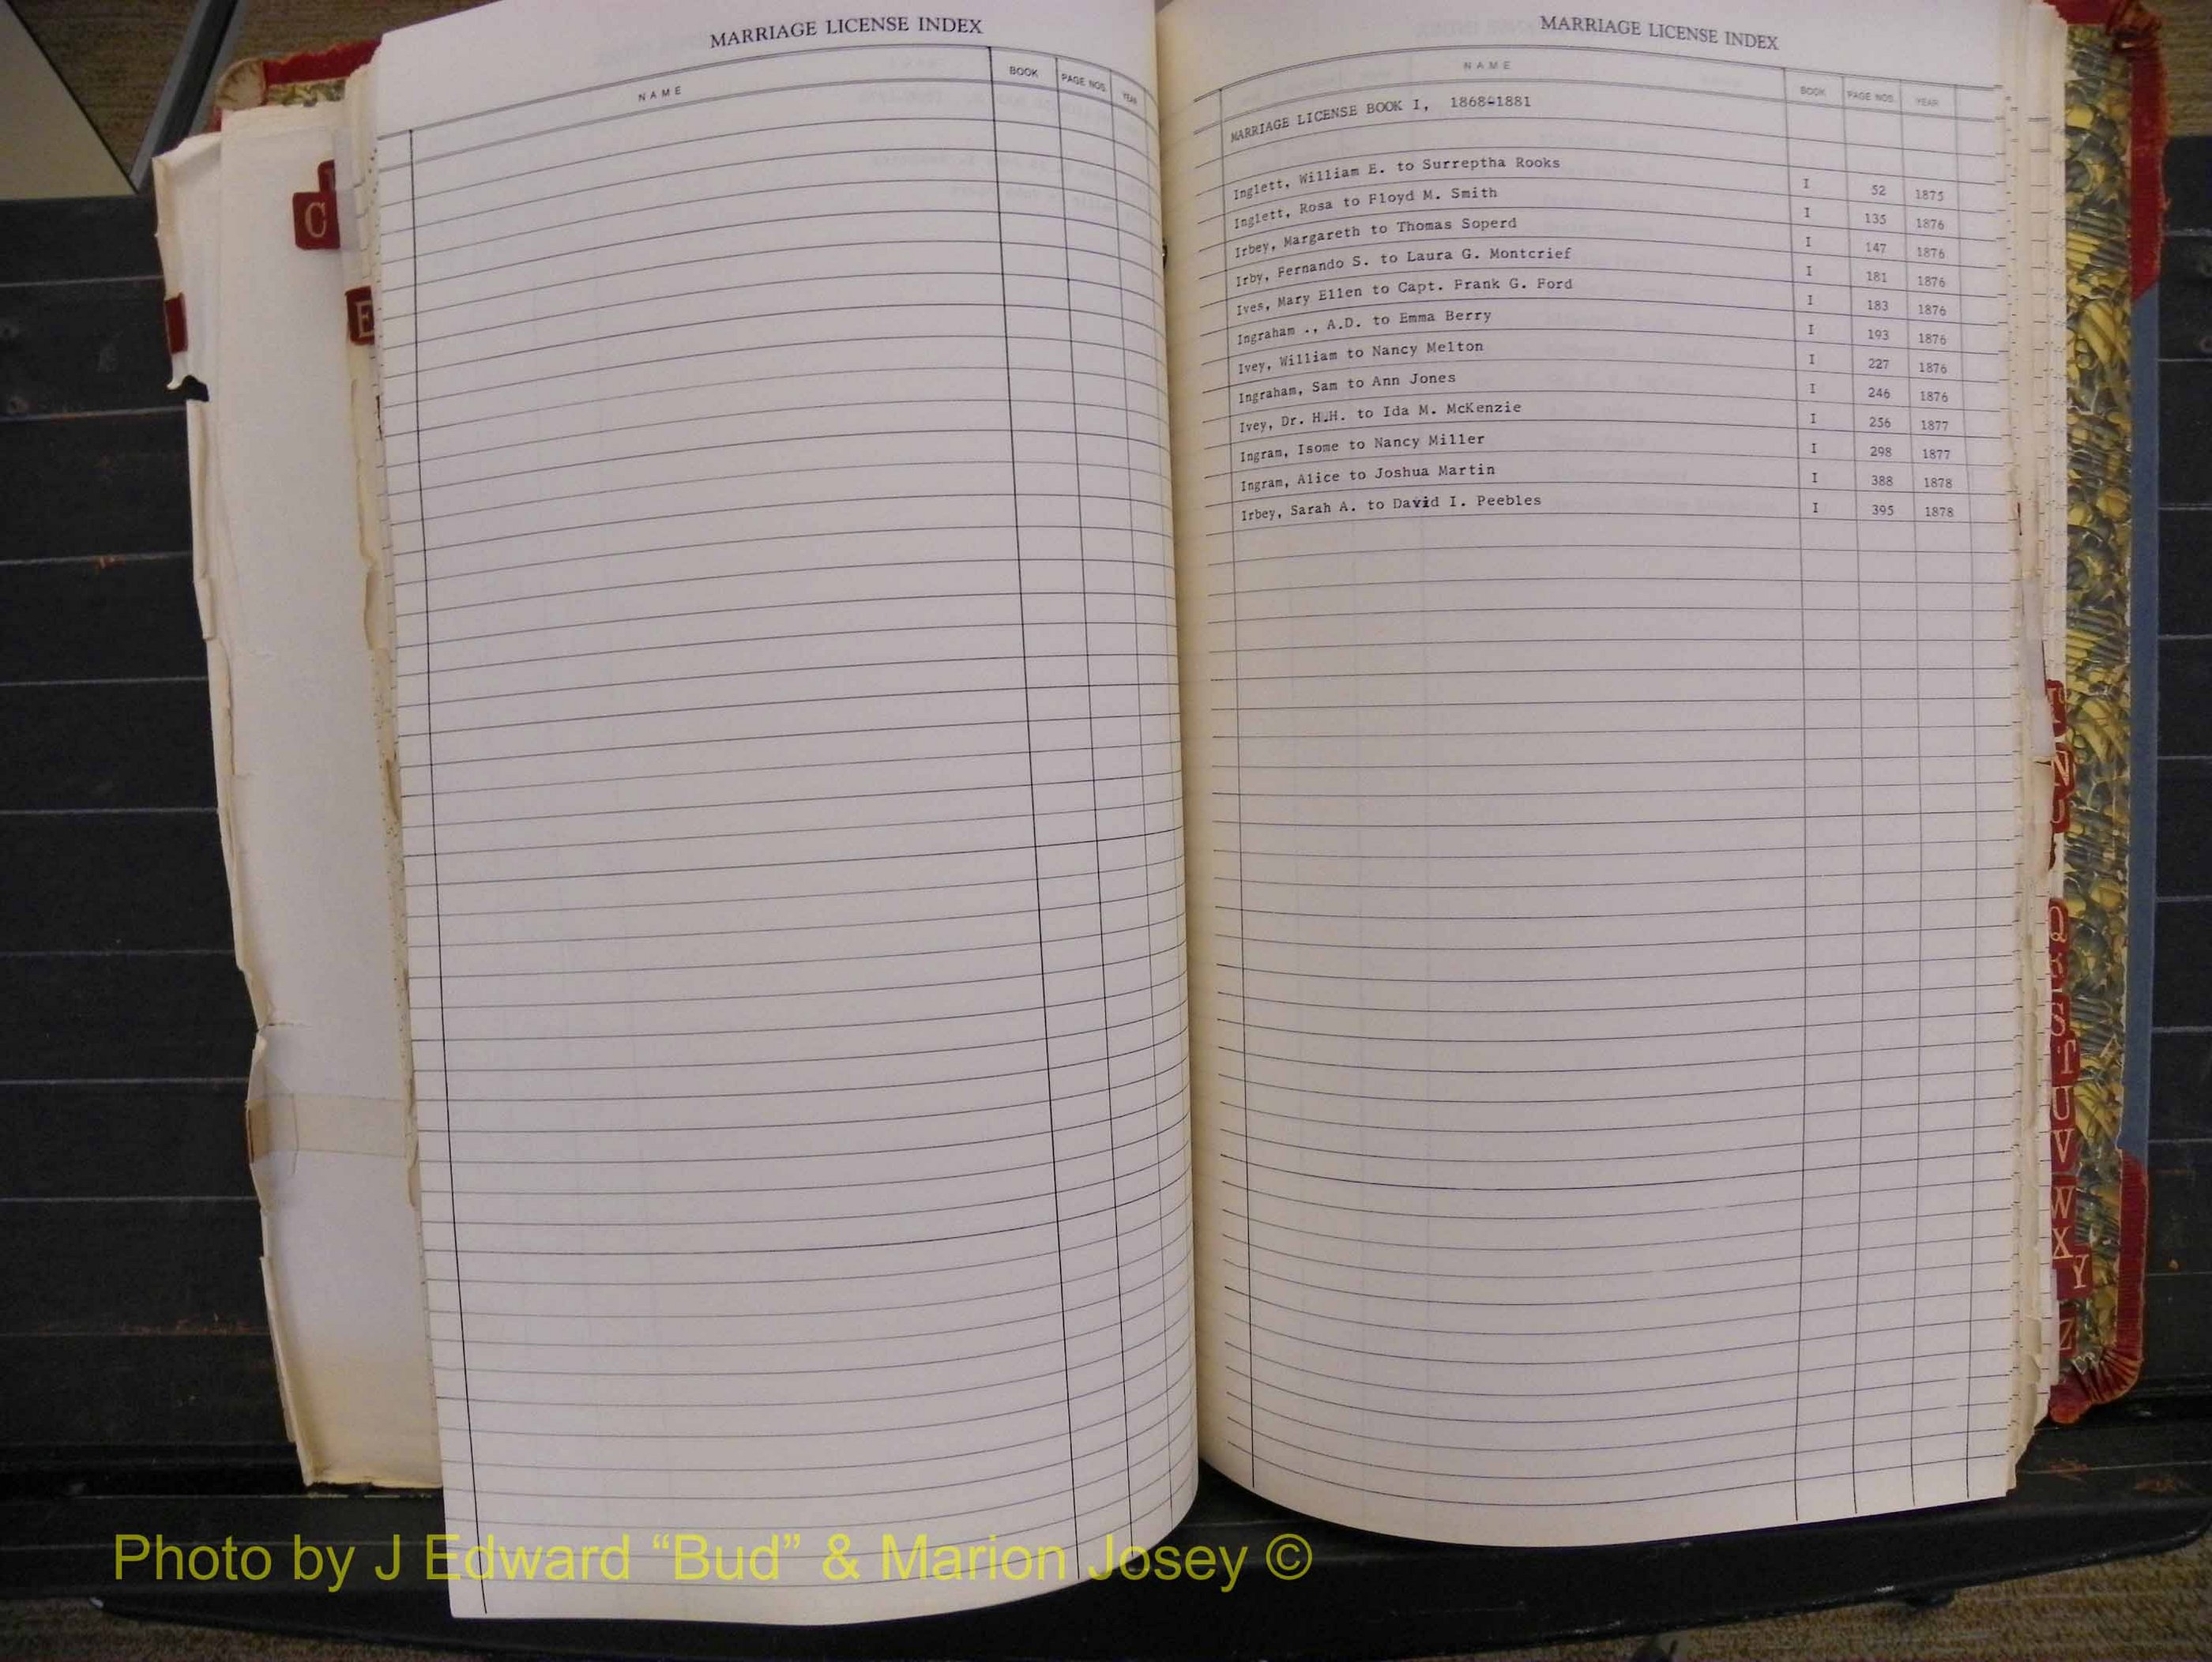 MARRIAGE LICENSE INDEX
NAME BOOK PAGE NOS. YEAR
C
E
MARRIAGE LICENSE INDEX
NAME BOOK PAGE NOS. YEAR
MARRIAGE LICENSE BOOK I, 1868-1881
Inglett, William E. to Surreptha Rooks I 52 1875
Inglett, Rosa to Floyd M. Smith I 135 1876
Irbey, Margareth to Thomas Soperd I 147 1876
Irby, Fernando S. to Laura G. Montcrief I 181 1876
Ives, Mary Ellen to Capt. Frank G. Ford I 183 1876
Ingraham ., A.D. to Emma Berry I 193 1876
Ivey, William to Nancy Melton I 227 1876
Ingraham, Sam to Ann Jones I 246 1876
Ivey, Dr. H.H. to Ida M. McKenzie I 256 1877
Ingram, Isome to Nancy Miller I 298 1877
Ingram, Alice to Joshua Martin I 388 1878
Irbey, Sarah A. to David I. Peebles I 395 1878
N
Q
R
S
T
U
V
W
X
Y
Z
Photo by J Edward “Bud” & Marion Josey ©